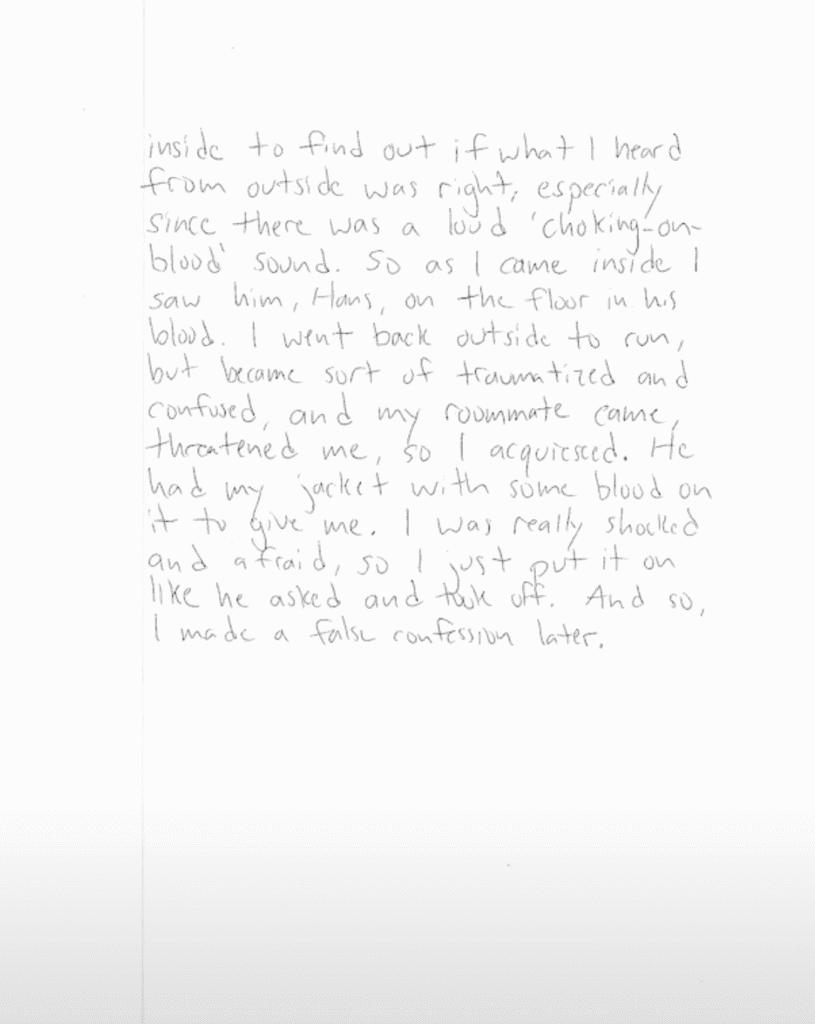 inside to find out if what I heard
from outside was right, especially
since there was a loud 'choking-on-
blood' sound. So as I came inside I
saw him, Hans, on the floor in his
blood. I went back outside to run,
but became sort of traumatized and
confused, and my roommate came,
threatened me, so I acquiesced. He
had my jacket with some blood on
it to give me. I was really shocked
and afraid, so I just put it on
like he asked and took off. And so,
I made a false confession later.